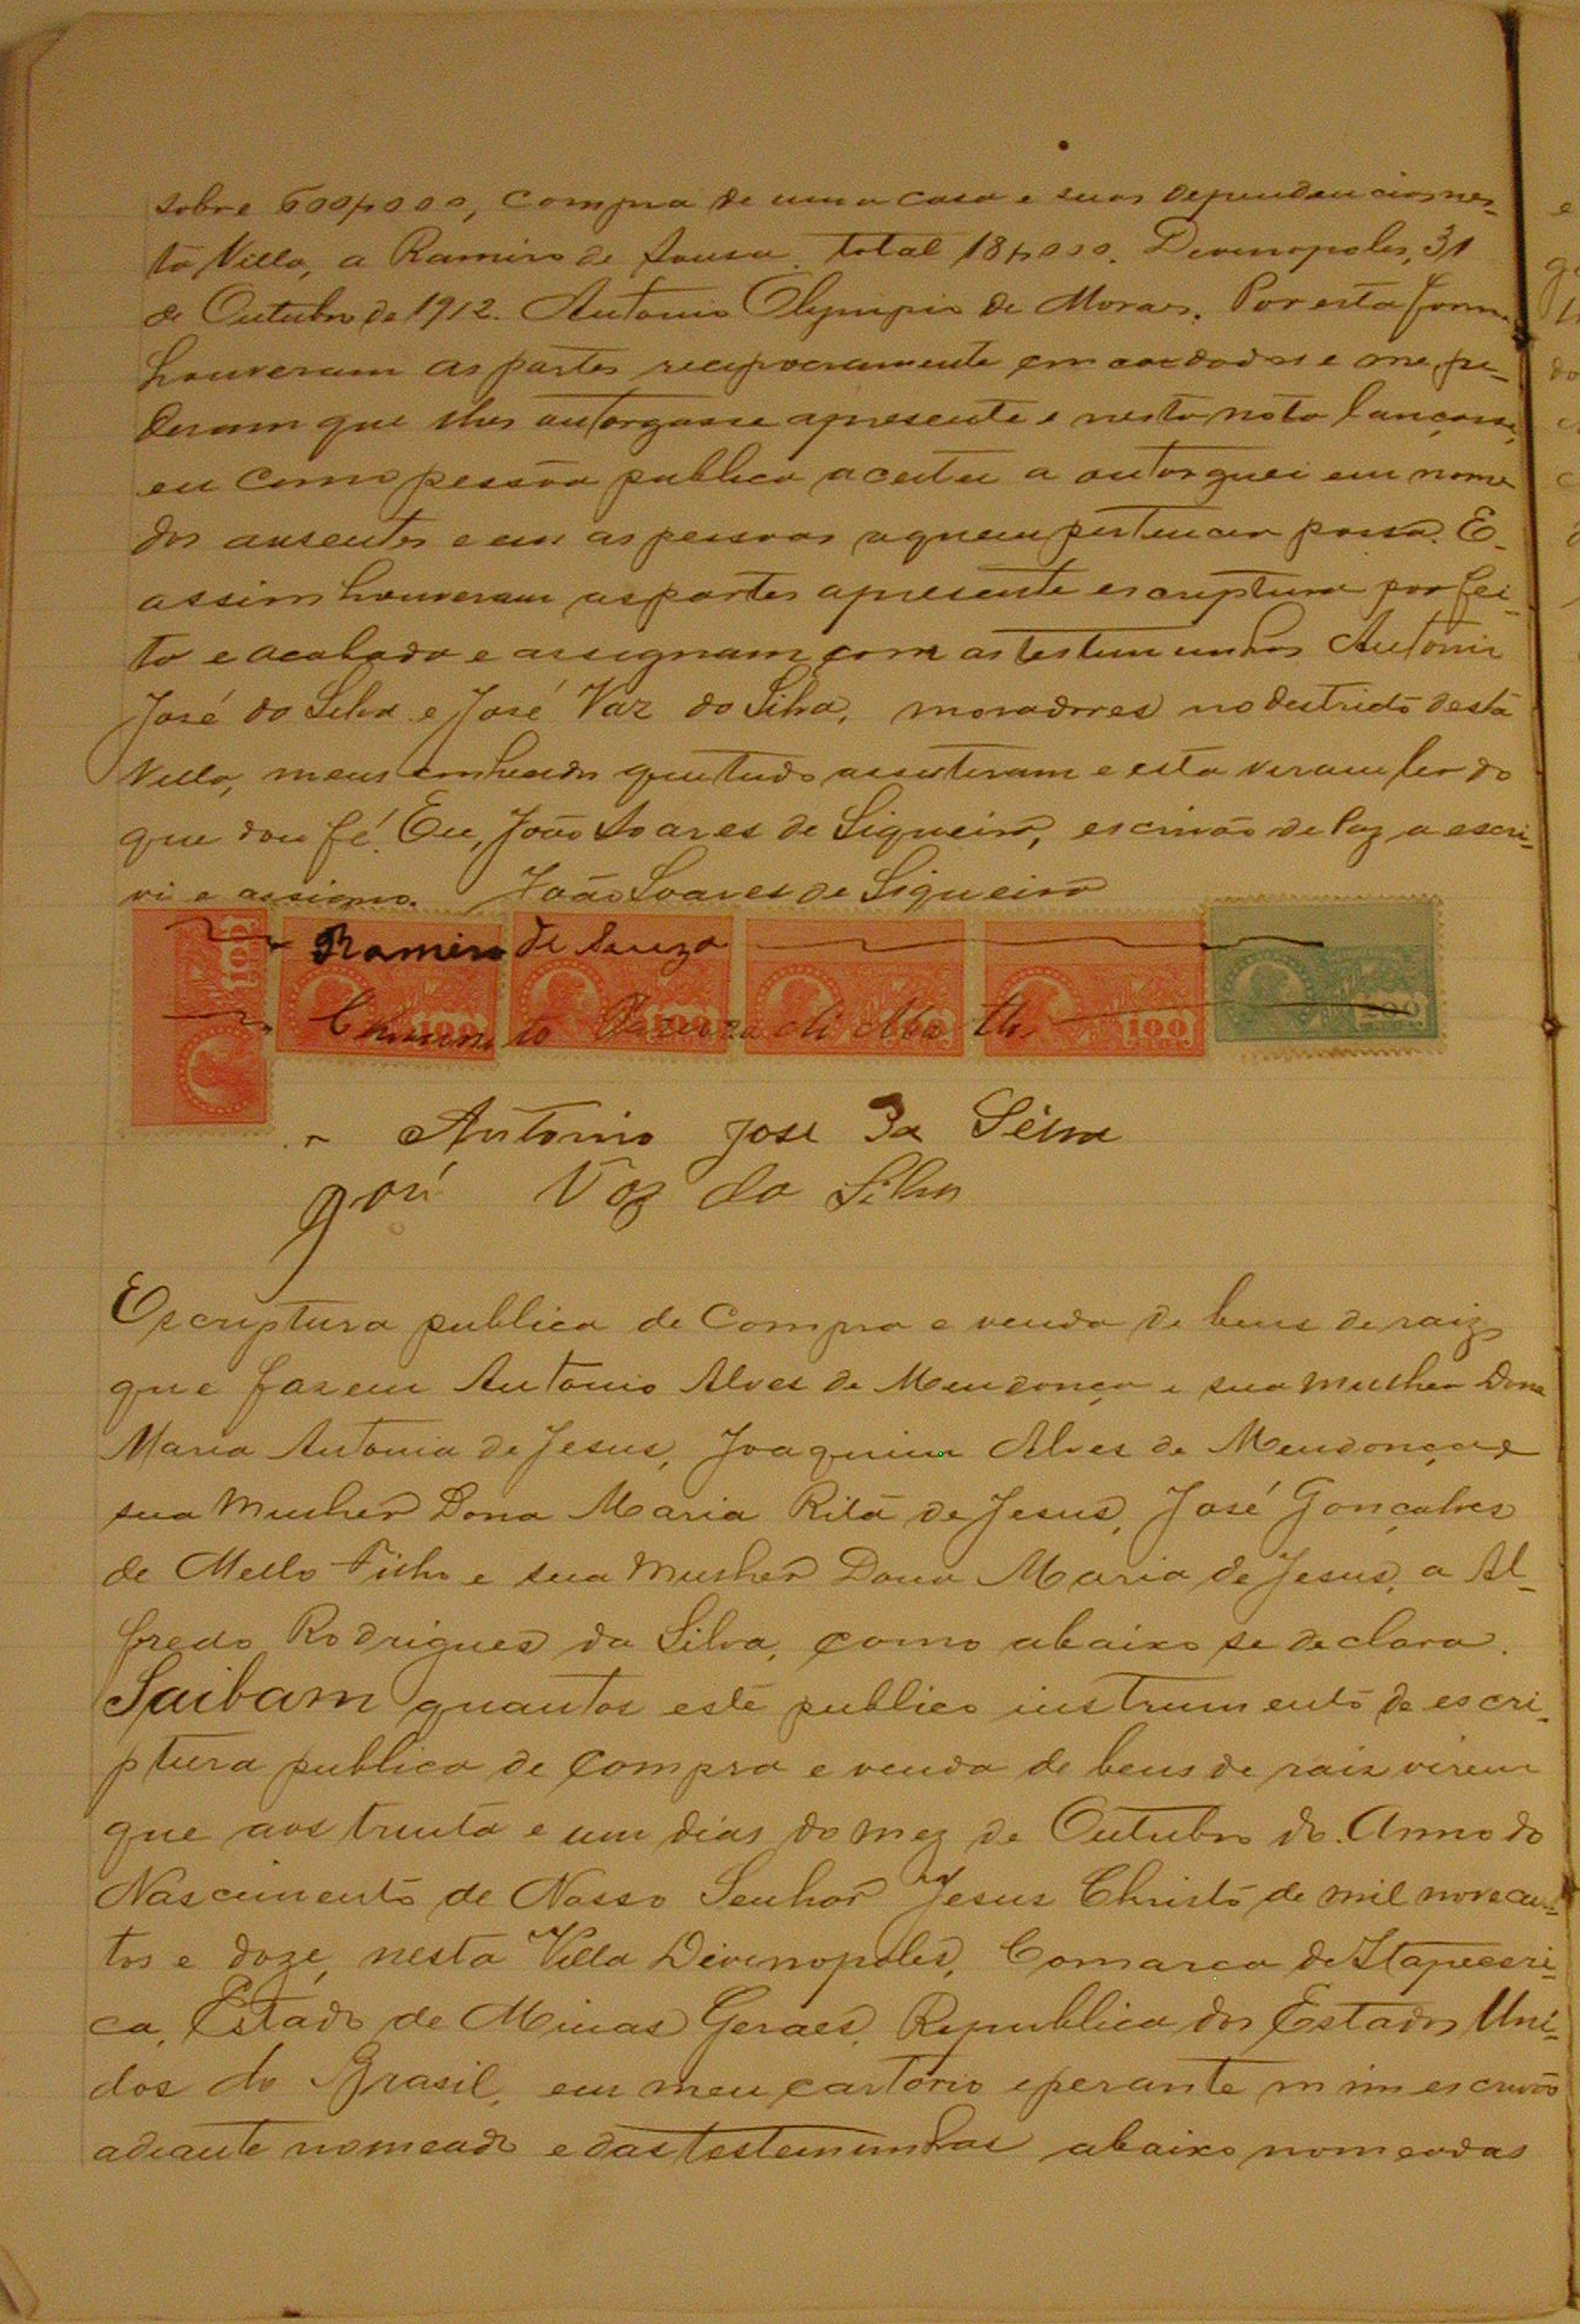 sobre 600$000, compra de uma casa e suas dependencias nes-
ta Villa, a Ramiro de Sousa total 18$000. Divinopoles, 31
de Outubro de 1912. Antonio Olympio de Moraes. Por esta forma
houveram as partes reciprocramente em accordadas e me pe-
deram que lhes autorgasse apresente e nesta nota lançasse,
eu como pessôa publica aceitei a outorguei em nome
dos ausentes e em as pessoas aquem pertencer possa. E
assim houveram as partes apresente escriptura por fei-
ta e acabada e assignam com as testemunhas Antonio
José da Silva e José Vaz da Silva, moradores no destricto desta
Villa, meus conhecidos que tudo assistiram e esta viram ler do
que dou fé. Eu, João Soares de Siqueira, escrivão de Paz a escri-
vi e assigno. João Soares de Siqueira
Ramiro de Souza
100 100 100 100 100 200
Antonio José Da Silva
José Vaz da Silva
Escriptura publica de Compra e venda de bens de raiz
que fazem Antonio Alves de Mendonça e sua mulher Dona
Maria Antonia de Jesus, Joaquim Alves de Mendonça e
sua mulher Dona Maria Rita de Jesus, José Gonçalves
de Mello Filho e sua mulher Dona Maria de Jesus, a Al-
fredo Rodrigues da Silva, como abaixo se declara.
Saibam quantos este publico instrumento de escri-
ptura publica de compra e venda de bens de raiz virem
que aos trinta e um dias do mez de Outubro do Anno do
Nascimento de Nosso Senhor Jesus Christo de mil novecen-
tos e doze, nesta Villa Divinopoles, Comarca de Itapeceri-
ca, Estado de Minas Geraes, Republica dos Estados Uni-
dos do Brasil, em meu cartorio e perante mim escrivão
adiante nomeado e das testemunhas abaixo nomeadas